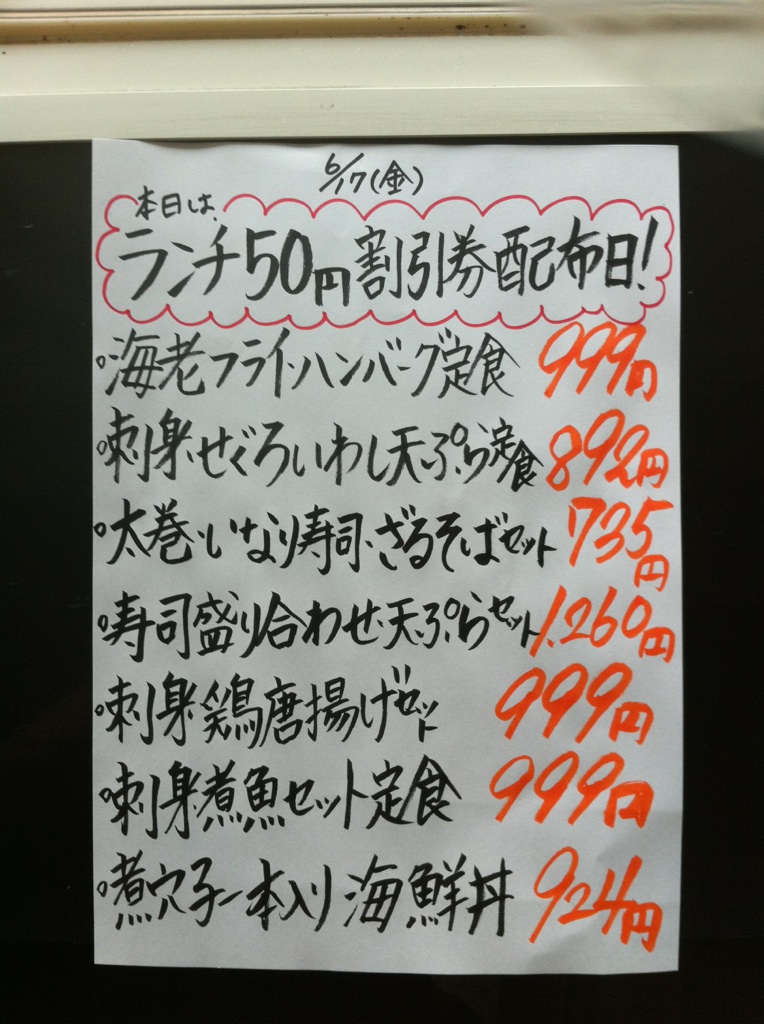 6/17(金)
本日は、
ランチ50円割引券配布日!
・海老フライ・ハンバーグ定食 999円
・刺身・せぐろいわし天ぷら定食 892円
・太巻・いなり寿司・ざるそばセット 735円
・寿司盛り合わせ・天ぷらセット 1,260円
・刺身・鶏唐揚げセット 999円
・刺身・煮魚セット定食 999円
・煮穴子一本入り海鮮丼 924円